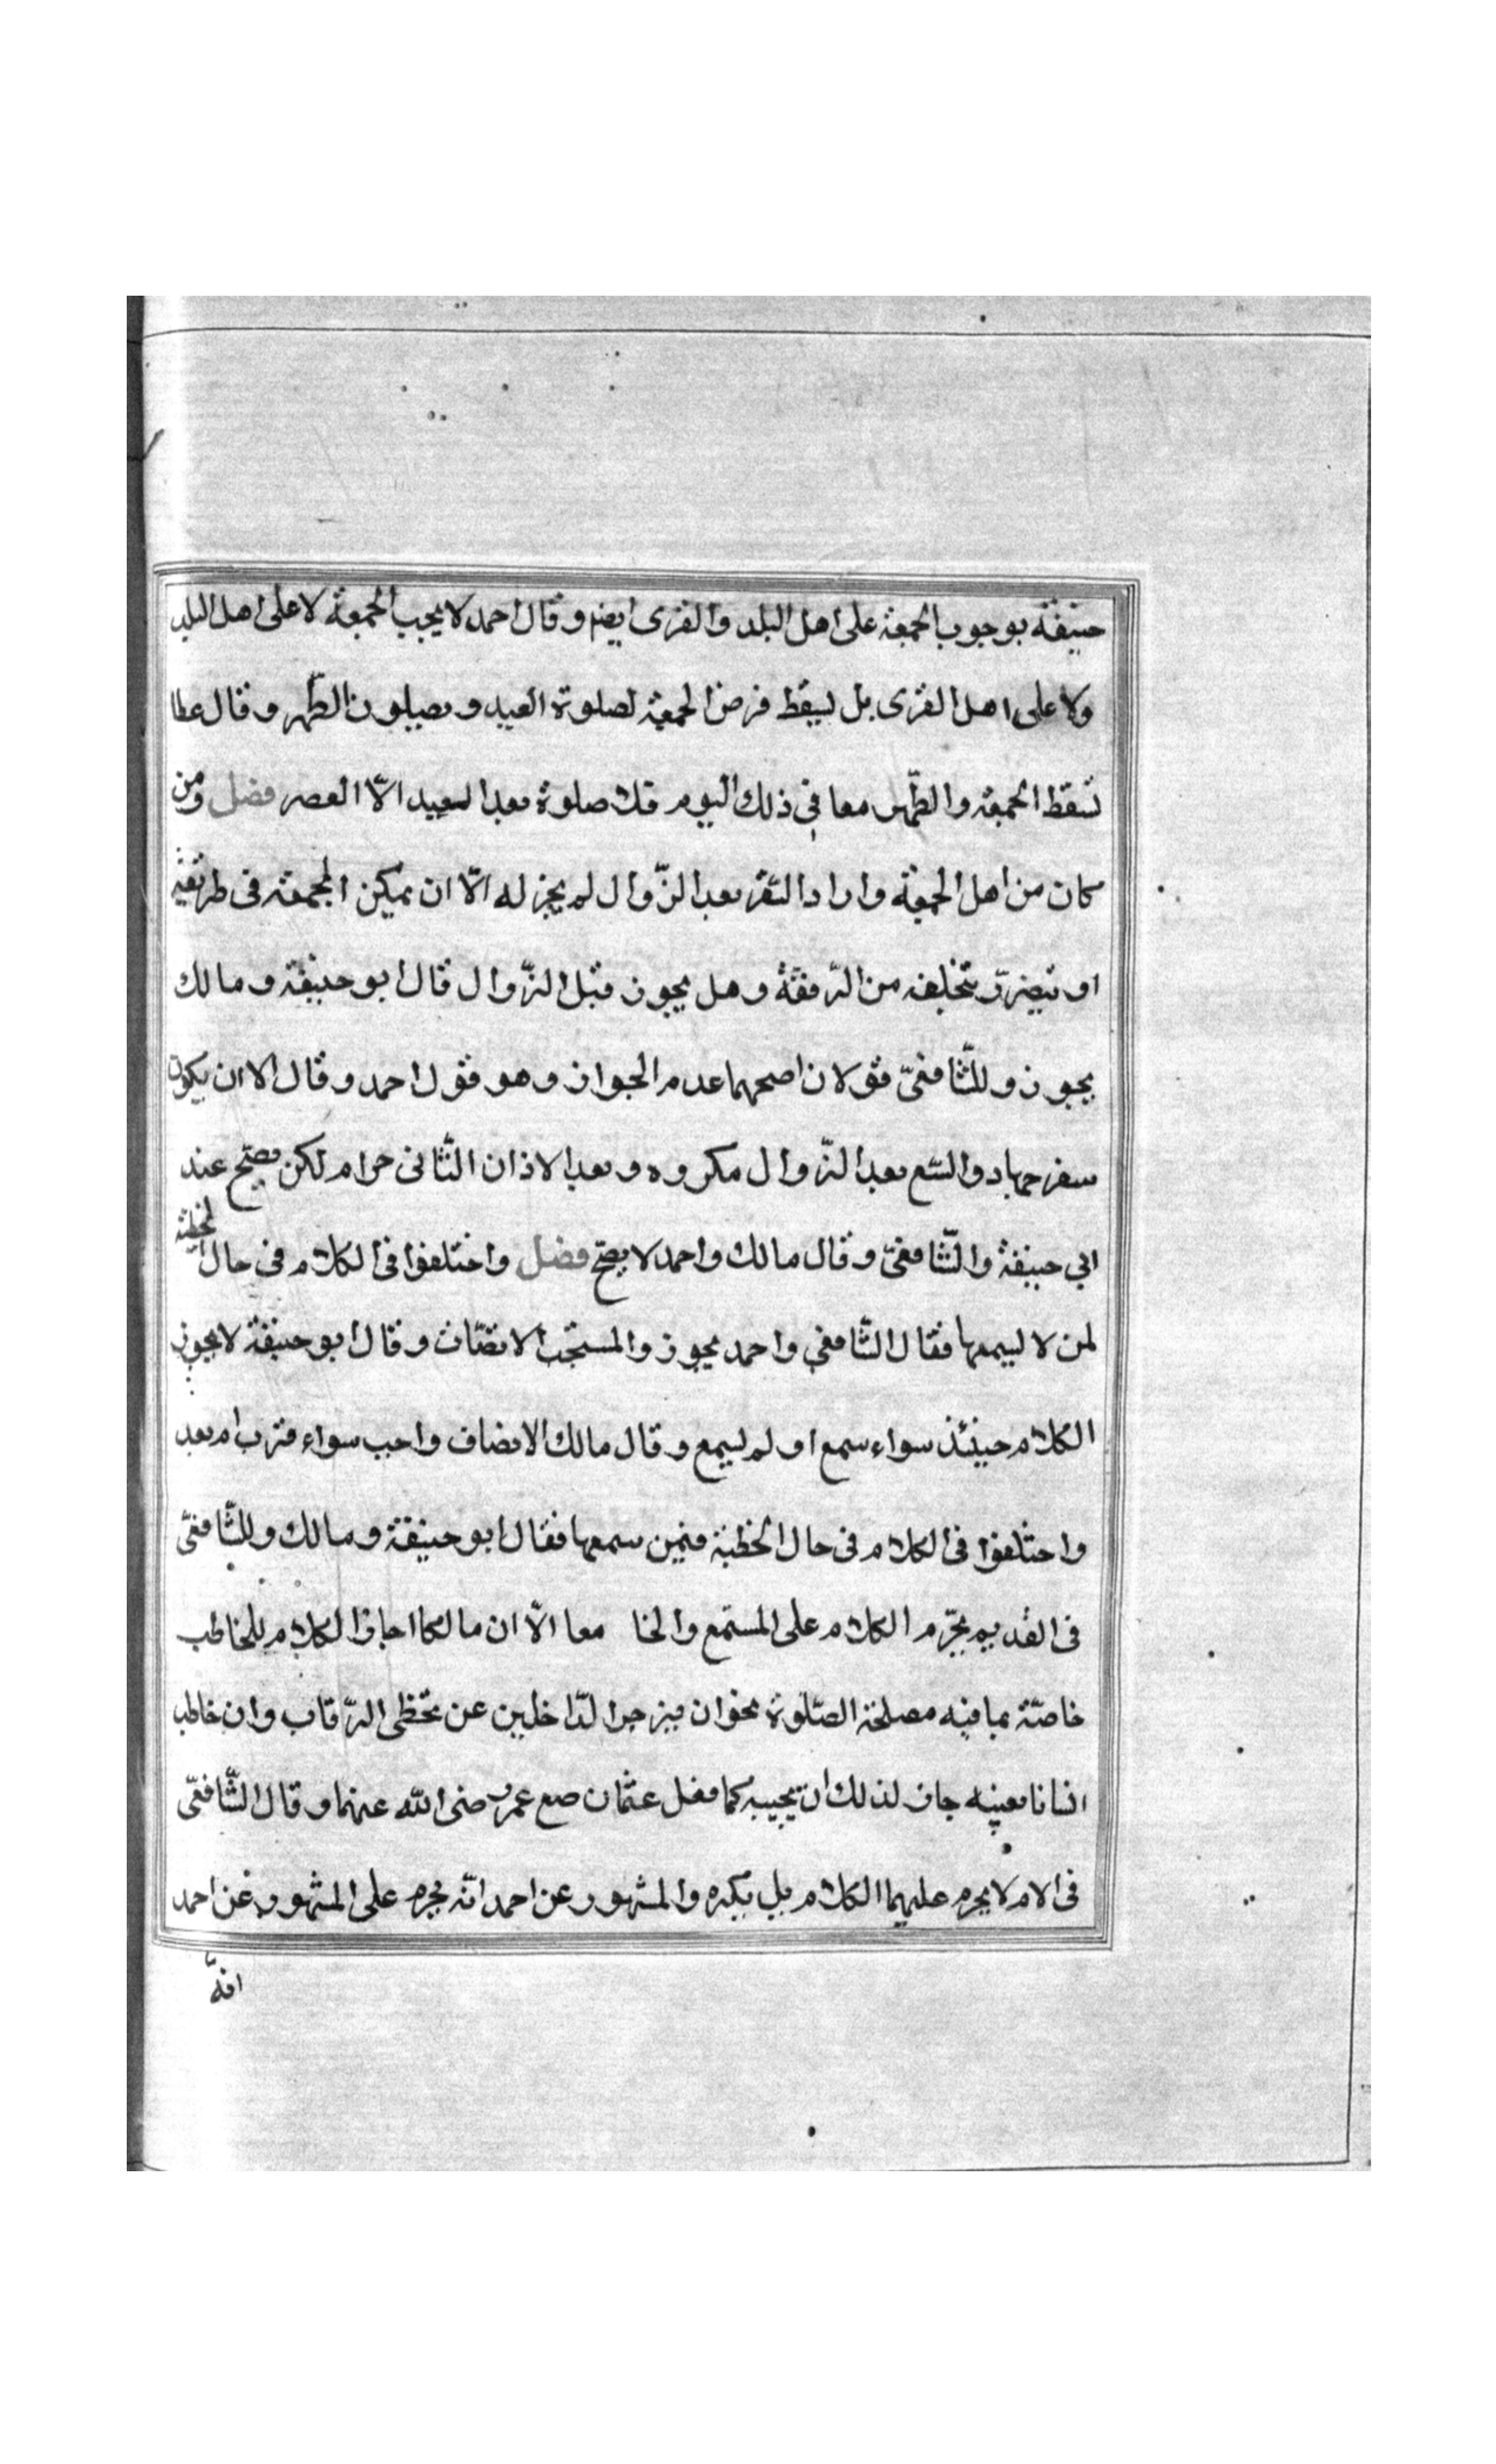 حنيفة بوجوب الجمعة على اهل البلد والقرى ايضا وقال احمد لا يجب الجمعة لا على اهل البلد
ولا على اهل القرى بل يسقط فرض الجمعة لصلوة العيد ويصلون الظهر وقال عطا
تسقط الجمعة والظهر معا في ذلك اليوم فلا صلوة بعد العيد الّا العصر فصل ومن
كان من اهل الجمعة واراد السّفر بعد الزّوال لم يجز له الّا ان يمكن الجمعة فى طريقه
او يتضرّر بتخلفه من الرّفقة وهل يجوز قبل الزّوال قال ابو حنيفة ومالك
يجوز وللشّافعىّ قولان اصحهما عدم الجواز وهو قول احمد وقال الا ان يكون
سفر جهاد والبيع بعد الزّوال مكروه وبعد الاذان الثّانى حرام لكن يصح عند
ابي حنيفة والشّافعىّ وقال مالك واحمد لا يصح فصل واختلفوا فى الكلام فى حال الخطبة
لمن لا يسمعها فقال الشّافعي واحمد يجوز والمستحبّ الانصات وقال ابو حنيفة لا يجوز
الكلام حينئذ سواء سمع او لم يسمع وقال مالك الانصات واجب سواء قرب ام بعد
واختلفوا فى الكلام فى حال الخطبة فيمن سمعها فقال ابو حنيفة ومالك وللشّافعىّ
فى القديم يحرّم الكلام على المستمع والخا معا الّا ان مالكا اجاز الكلام للخاطب
خاصّة بما فيه مصلحة الصّلوة نحو ان يزجر الدّاخلين عن تخطى الرّقاب وان خاطب
انسانا بعينه جاز لذلك ان يجيبه كما فعل عثمان مع عمر رضى الله عنهما وقال الشّافعىّ
فى الام لا يحرم عليهما الكلام بل يكره والمشهور عن احمد انّه يحرم على المشهور عن احمد
انّه